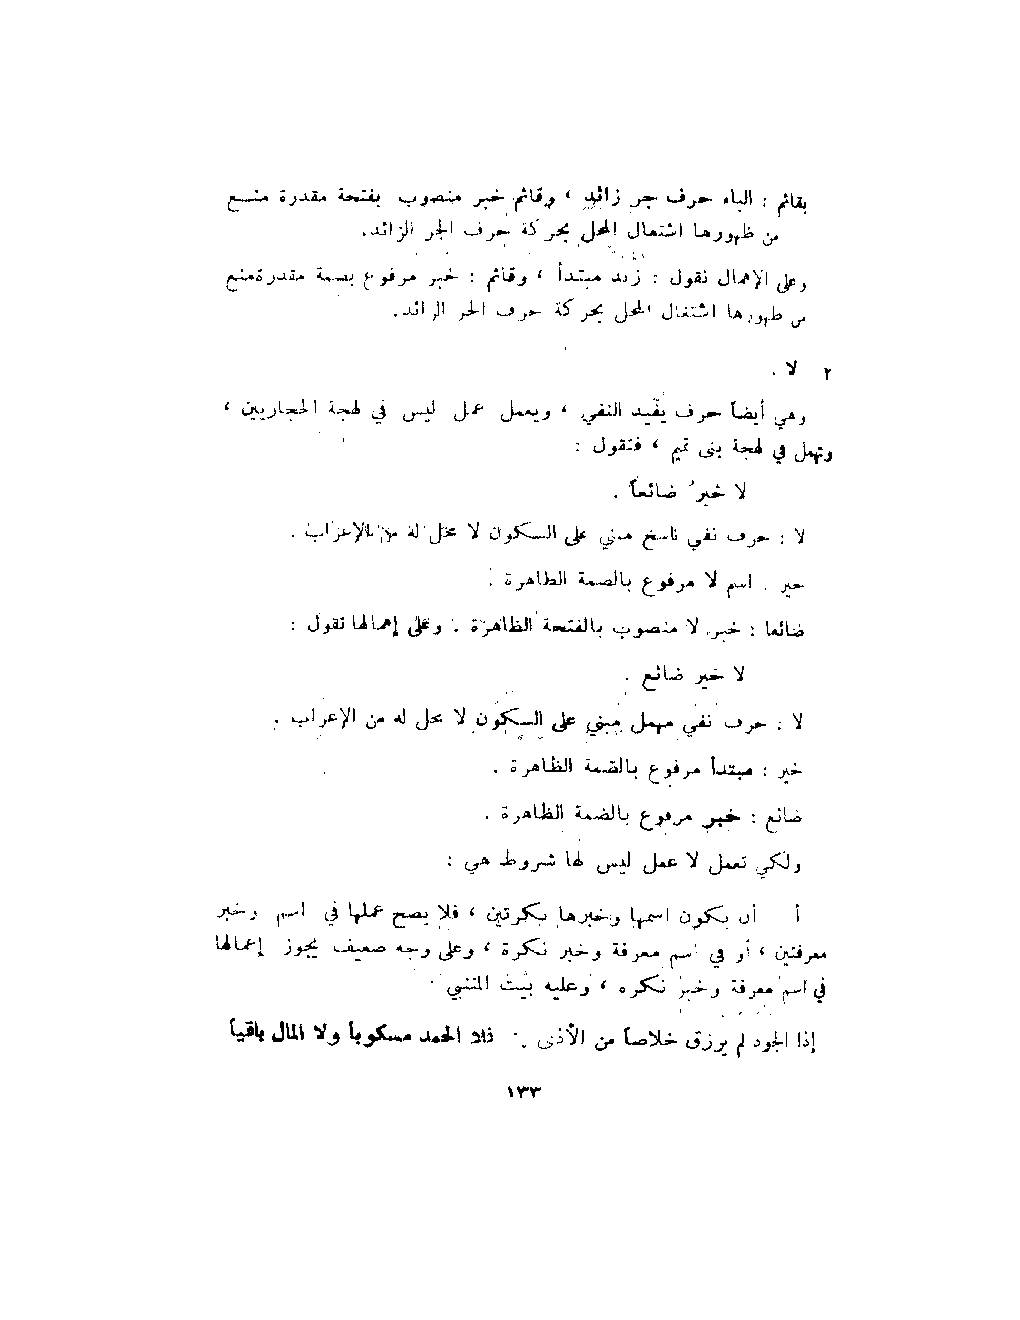 بقائم : الباء حرف جر زائد ، وقائم خبر منصوب بفتحة مقدرة منع
من ظهورها اشتغال المحل بحركة حرف الجر الزائد.
وعلى الإهمال نقول : زيد مبتدأ ، وقائم : خبر مرفوع بضمة مقدرة منع
من ظهورها اشتغال المحل بحركة حرف الجر الزائد.
٢ لا .
وهي أيضاً حرف يفيد النفي ، ويعمل عمل ليس في لهجة الحجازيين ،
وتهمل في لهجة بني تميم ، فتقول :
لا خيرُ ضائعاً .
لا : حرف نفي ناسخ مبني على السكون لا محل له من الإعراب .
خير : اسم لا مرفوع بالضمة الظاهرة .
ضائعا : خبر لا منصوب بالفتحة الظاهرة . وعلى إهمالها نقول :
لا خير ضائع .
لا : حرف نفي مهمل مبني على السكون لا محل له من الإعراب .
خير : مبتدأ مرفوع بالضمة الظاهرة .
ضائع : خبر مرفوع بالضمة الظاهرة .
ولكي تعمل لا عمل ليس لها شروط هي :
أ أن يكون اسمها وخبرها نكرتين ، فلا يصح عملها في اسم وخبر
معرفتين ، أو في اسم معرفة وخبر نكرة ، وعلى وجه ضعيف يجوز إعمالها
في اسم معرفة وخبر نكره ، وعليه بيت المتنبي .
إذا الجود لم يرزق خلاصاً من الأذى .. فلا الحمد مسكوباً ولا المال باقياً
١٣٣